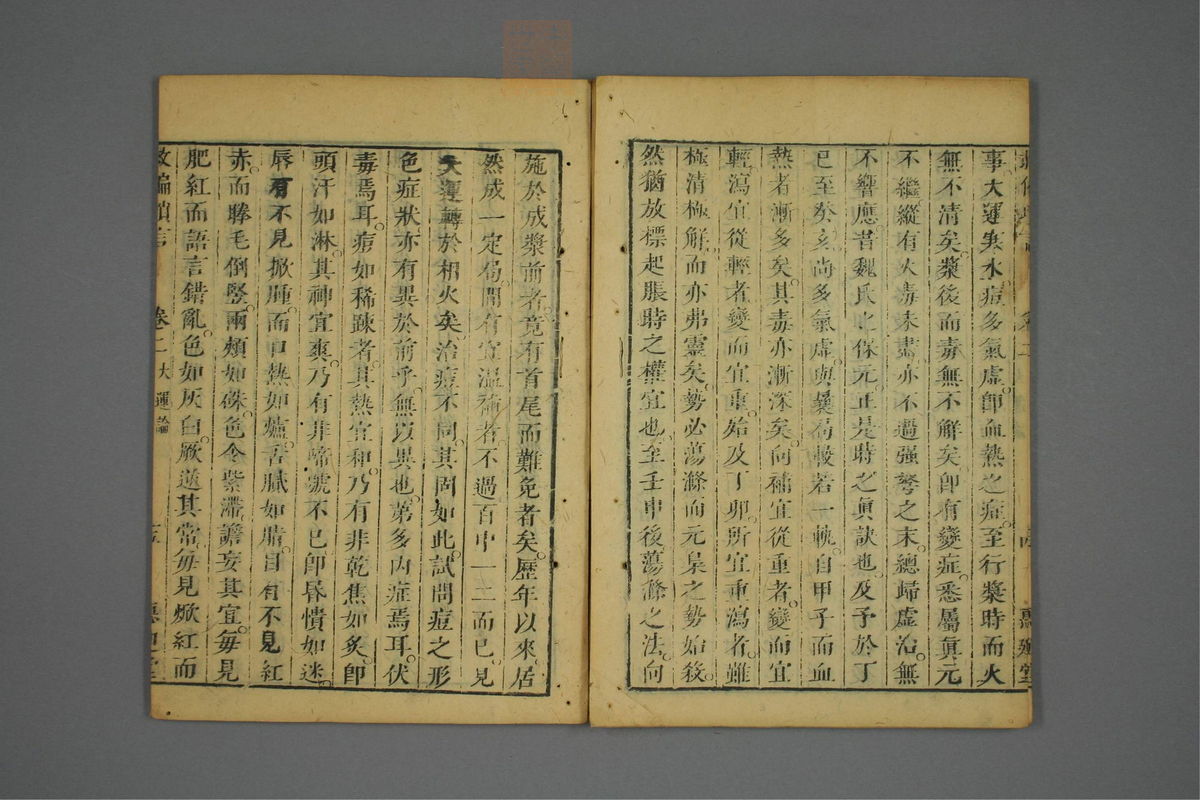 事大運寒水痘多氣虛卽血熱之症至行漿時而火
無不清矣漿後而毒無不解矣卽有變症悉屬眞元
不繼縱有火毒未盡亦不過强弩之末總歸虛治無
不響應昔魏氏之保元正是時之眞訣也及予於丁
巳至癸亥尚多氣虛與曩局較若一軌自甲子而血
熱者漸多矣其毒亦漸深矣向補宜從重者變而宜
輕瀉宜從輕者變而宜重始及丁卯所宜重瀉者雖
極清極解而亦弗靈矣勢必蕩滌而元梟之勢始殺
然猶放標起脹時之權宜也至壬申後蕩滌之法向
施於成漿前者竟有首尾而難免者矣歷年以來居
然成一定局間有宜溫補者不過百中一二而已見
大運轉於相火矣治痘不同其局如此試問痘之形
色症狀亦有異於前乎無以異也第多內症焉耳伏
毒焉耳痘如稀疎者其熱宜和乃有非乾焦如炙卽
頭汗如淋其神宜爽乃有非啼號不已卽昏憒如迷
唇有不見掀腫而口熱如爐舌膩如腊目有不見紅
赤而睫毛倒竪兩頰如硃色令紫滯譫妄其宜每見
肥紅而語言錯亂色如灰白厥逆其常每見焮紅而
救偏瑣言 卷二 大運論